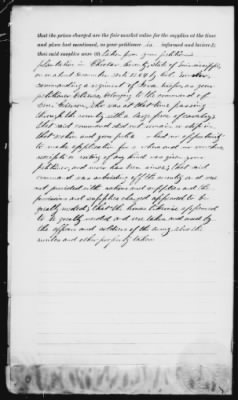 that the prices charged are the fair market value for the supplies at the time
and place last mentioned, as your petitioner is informed and believes;
that said supplies were taken from your petitioners
plantation in Choctaw County, State of Mississippi,
on or about December 1864 by Col.
commanding a regiment of troops, as your
petitioner believes, belonging to the command of
Gen. Grierson, who was at that time passing
through the county with a large force of cavalry;
that said command did not remain or stop in
that section and your petitioner had no opportunity
to make application for a voucher and no voucher
receipt or writing of any kind was given your
petitioner, and none has been since; that said
command was subsisting off the country and was
not provided with rations and supplies and the
provisions and supplies charged appeared to be
greatly needed; that the horses likewise appeared
to be greatly needed and were taken and used by
the officers and soldiers of the army, also the
mules and other property taken